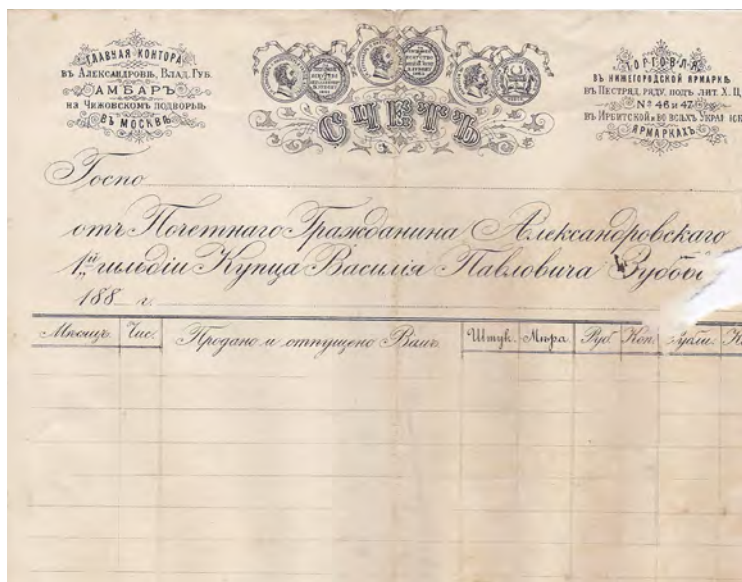 ГЛАВНАЯ КОНТОРА
ВЪ АЛЕКСАНДРОВѢ, ВЛАД. ГУБ.
АМБАРЪ
НА ЧИЖОВСКОМЪ ПОДВОРЬѢ,
ВЪ МОСКВѢ.
СЧЕТЪ
ТОРГОВЛЯ
ВЪ НИЖЕГОРОДСКОЙ ЯРМАРКѢ
ВЪ ПЕСТРЯД. РЯДУ, ПОДЪ ЛИТ. Х. Ц.
№ 46 и 47
ВЪ ИРБИТСКОЙ И ВО ВСѢХЪ
ЯРМАРКАХЪ
Госпо
отъ Почетнаго Гражданина Александровскаго
1й гильдіи Купца Василія Павловича Зубов
188 г.
Мѣсяцъ. Чис. Продано и отпущено Вамъ Штук. Мѣра. Руб. Коп. Рубли. К